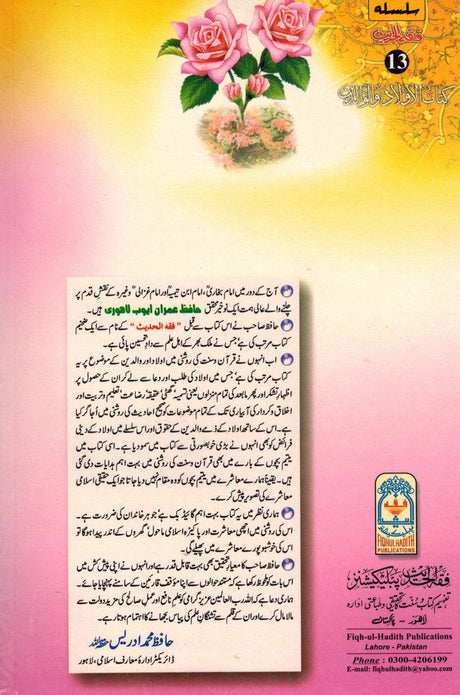 سلسلہ
فقہ الحدیث
13
کتاب الاولاد والوالدین
آج کے دور میں امام بخاریؒ، امام ابن تیمیہؒ اور امام غزالیؒ وغیرہ کے نقشِ قدم پر
چلنے والے عالی ہمت ایک نوخیز محقق حافظ عمران ایوب لاہوری ہیں۔
حافظ صاحب نے اس کتاب سے قبل ”فقہ الحدیث“ کے نام سے ایک ضخیم
کتاب مرتب کی ہے' جس نے ملک بھر کے اہل علم سے دادِ تحسین پائی ہے۔
اب انہوں نے قرآن وسنت کی روشنی میں اولاد اور والدین کے موضوع پر یہ
کتاب مرتب کی ہے' جس میں اولاد کی طلب اور دعا سے لے کر ان کے حصول پر
اظہارِ تشکر اور پھر مابعد کی تمام منزلوں یعنی تسمیہ' گھٹی' عقیقہ' رضاعت' تعلیم وتربیت اور
اخلاق وکردار کی آبیاری تک کے تمام موضوعات کو صحیح احادیث کی روشنی میں اُجاگر کیا
ہے۔ اس کے ساتھ اولاد کے ذمے والدین کے حقوق اور اس سلسلے میں اولاد کے دینی
فرائض کو بھی انہوں نے بڑی خوبصورتی سے کتاب میں سمو دیا ہے۔ اسی کتاب میں
یتیم بچوں کے بارے میں بھی قرآن وسنت کی روشنی میں بہت اہم ہدایات دی گئی
ہیں۔ یقیناً ہمارے معاشرے میں یتیم بچوں کو وہ مقام نہیں دیا جاتا جو ایک حقیقی اسلامی
معاشرے کی تصویر پیش کرے۔
ہماری نظر میں یہ کتاب بہت اہم گائیڈ بک ہے جو ہر خاندان کی ضرورت ہے۔
اس کی روشنی میں اچھی معاشرت اور پاکیزہ اسلامی ماحول' گھروں کے اندر پیدا ہوگا تو
اس کی خوشبو پورے معاشرے میں پھیلے گی۔
حافظ صاحب کا معیارِ تحقیق بھی بہت قابلِ قدر ہے اور انہوں نے اپنی پیش کش میں
اس بات کو ملحوظ رکھا ہے کہ مستند حوالوں سے اپنا مؤقف قارئین کے سامنے پہنچایا جائے۔
ہماری دعا ہے کہ اللہ رب العالمین عزیز گرامی کو علم نافع اور عملِ صالح کی مزید دولت سے
مالا مال کرے اور ان کے قلم سے تشنگانِ علم کی پیاس بجھانے کا اہتمام ہوتا رہے۔
حافظ محمد ادریس حفظہ اللہ
ڈائریکٹر ادارہ معارف اسلامی، لاہور
FIQHULHADITH
PUBLICATIONS
فقہ الحدیث پبلیکیشنز
تفہیمِ کتاب و سنت کا تحقیقی و طباعتی ادارہ
لاہور - پاکستان
Fiqh-ul-Hadith Publications
Lahore - Pakistan
Phone : 0300-4206199
E-mail: fiqhulhadith@yahoo.com